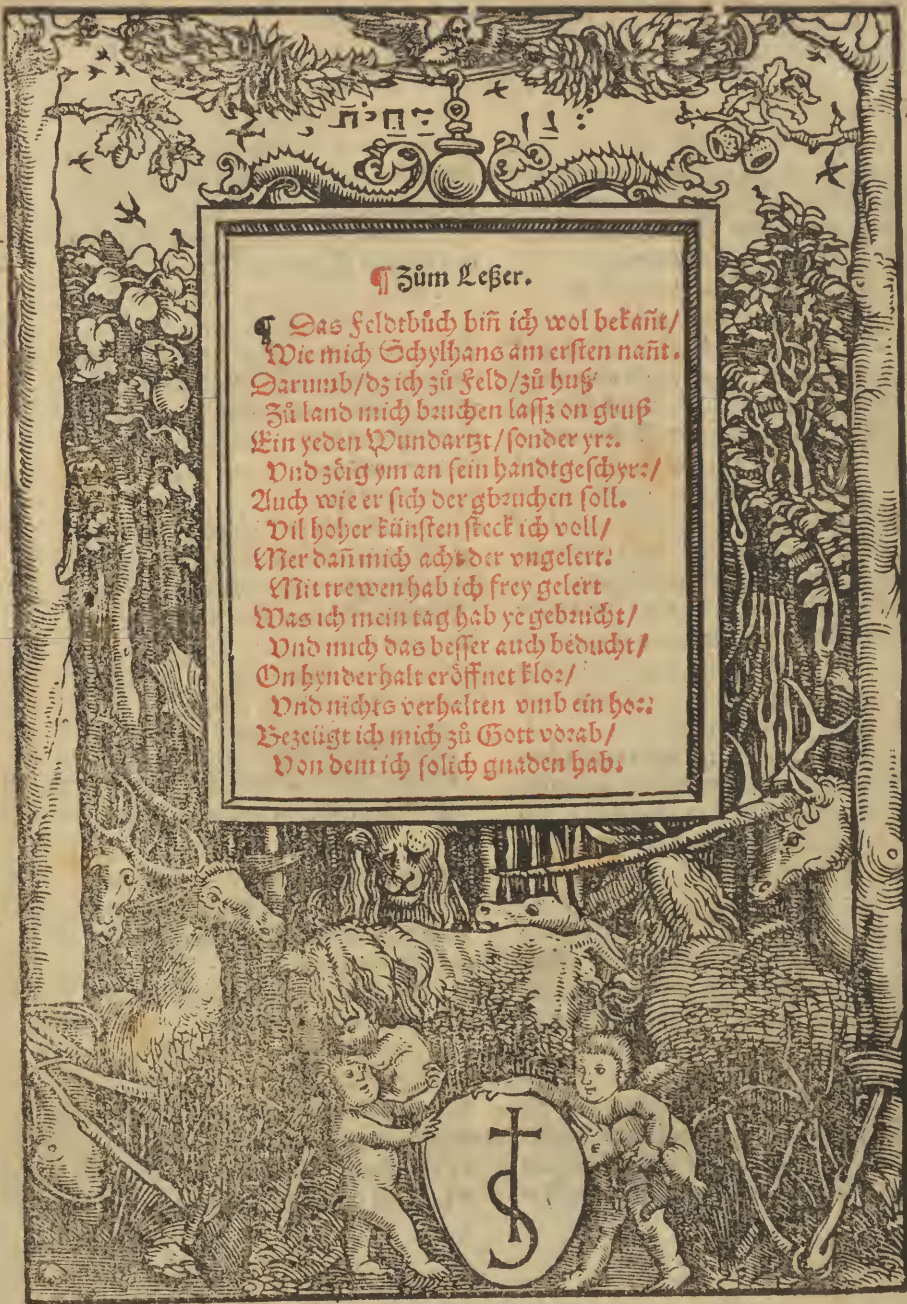 ¶ Zům Leßer.
¶ Das Feldtbůch bin̄ ich wol bekan̄t/
Wie mich Schylhans am ersten nan̄t.
Darumb/dz ich zů Feld/zů huß
Zů land mich bruchen lassz on gruß
Ein yeden Wundartzt/sonder yrr.
Vnd zőig ym an sein handtgeschyrr/
Auch wie er sich der gbruchen soll.
Vil hoher künsten steck ich voll/
Mer dan̄ mich acht der vngelert:
Mit trewen hab ich frey gelert
Was ich mein tag hab ye gebrucht/
Vnd mich das besser auch beducht/
On hynderhalt eröffnet klor/
Vnd nichts verhalten vmb ein hor:
Bezeügt ich mich zů Gott vorab/
Von dem ich solich gnaden hab.